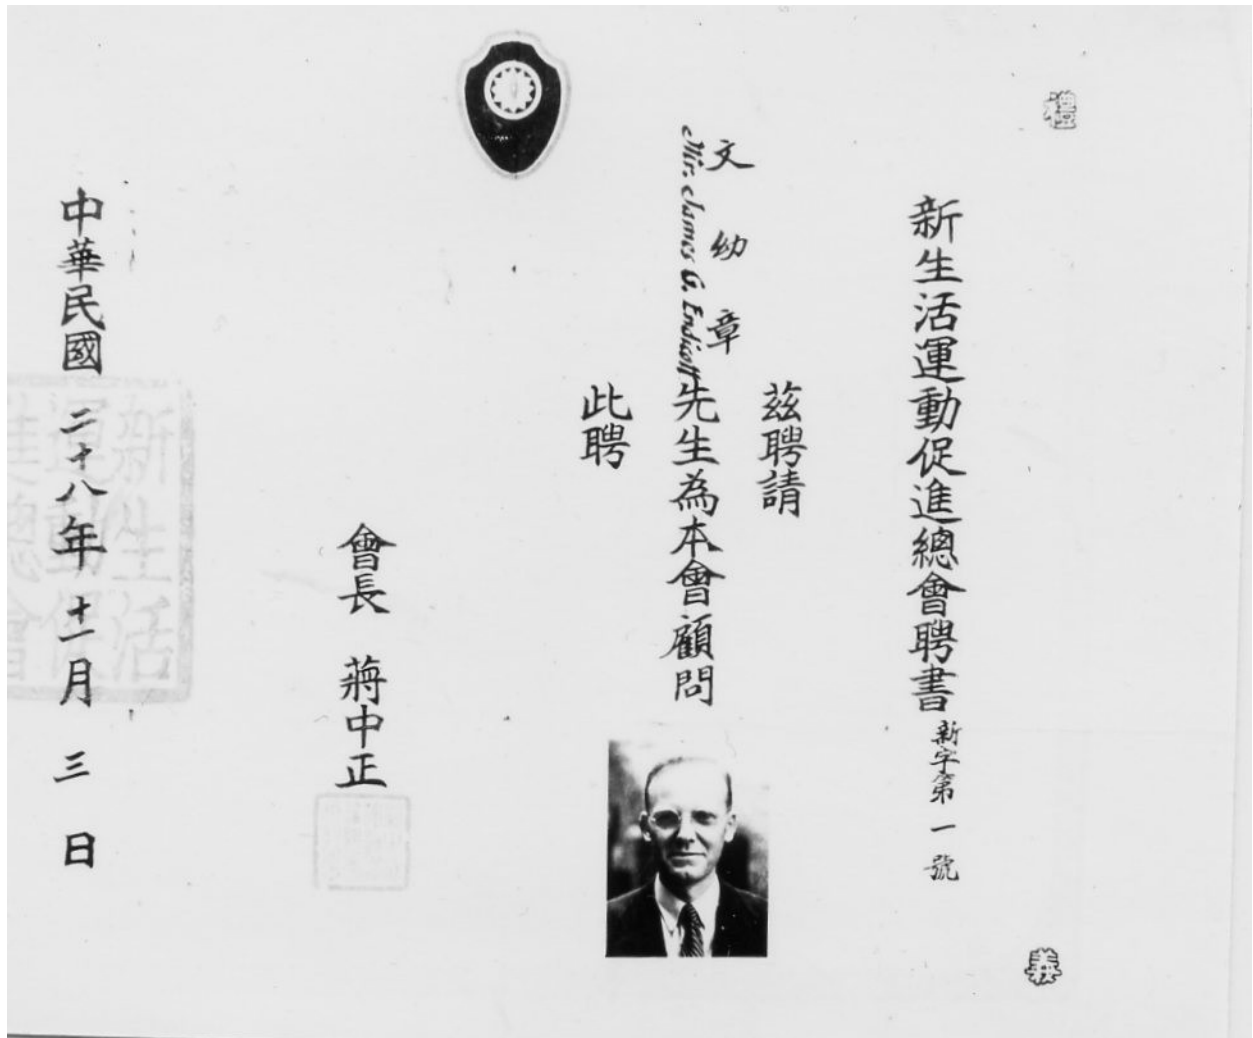 禮
義
新生活運動促進總會聘書 新字第一號
茲聘請
文幼章
Mr. James G. Endicott
先生為本會顧問
此聘
會長 蔣中正
中華民國二十八年十一月三日
新生活
運動促
進總會